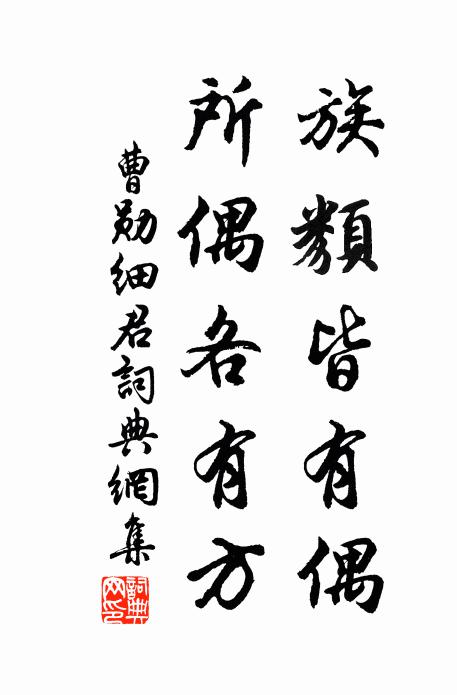 族類皆有偶
所偶各有方
曹勛細君詞典網集
詞典网印